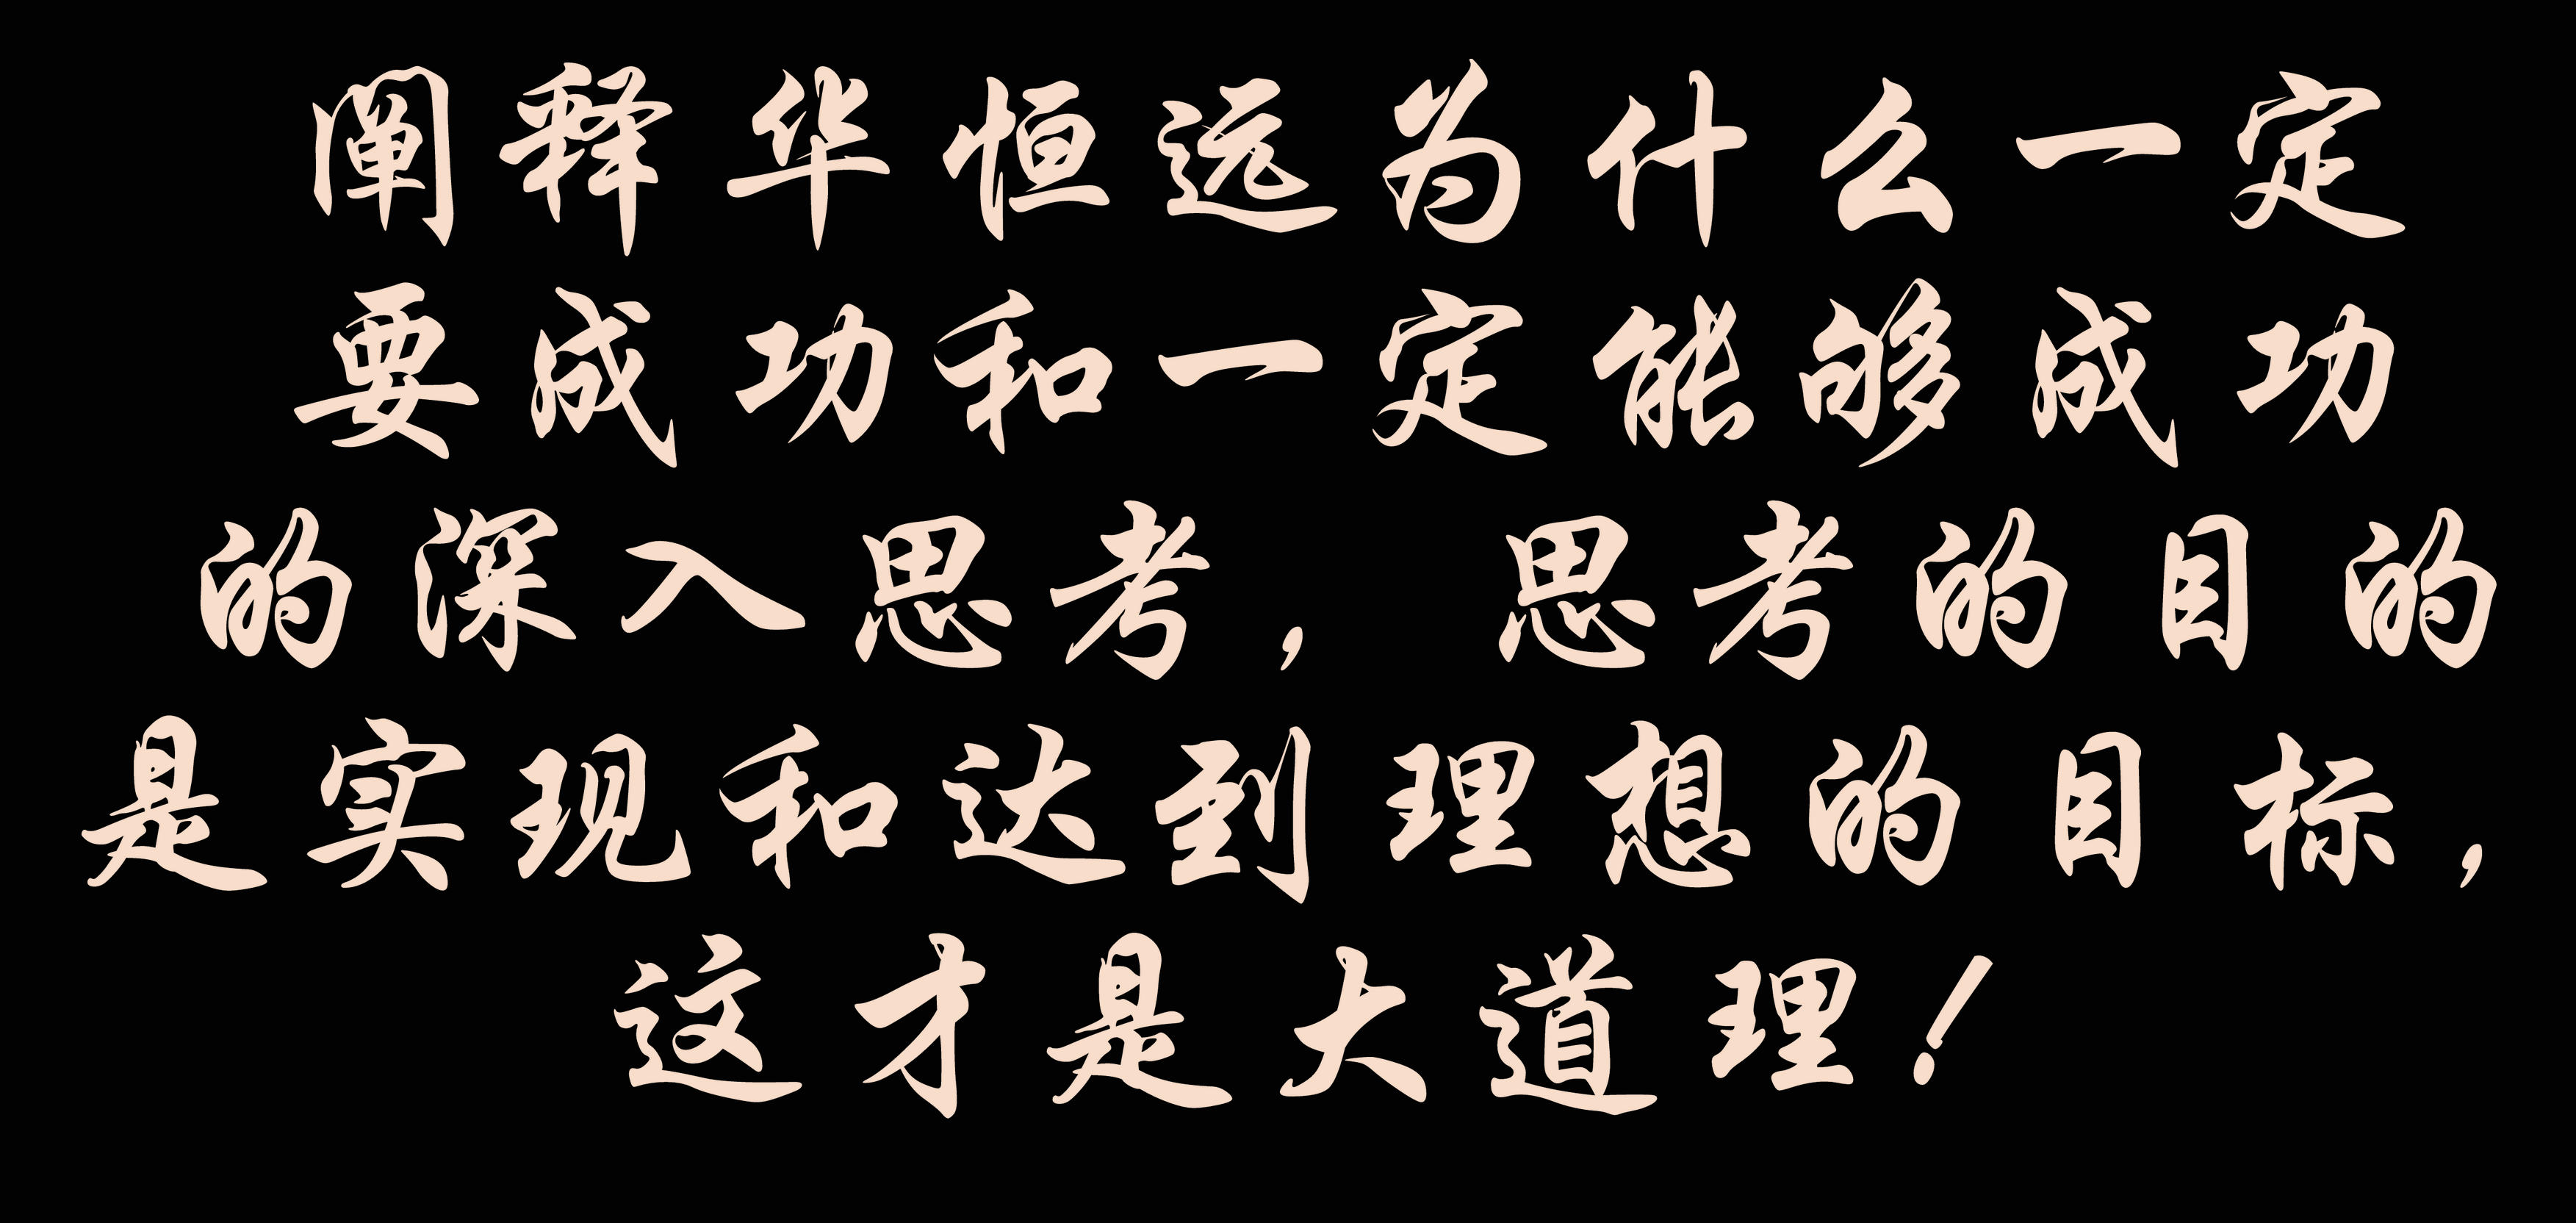 阐释华恒远为什么一定
要成功和一定能够成功
的深入思考，思考的目的
是实现和达到理想的目标，
这才是大道理！